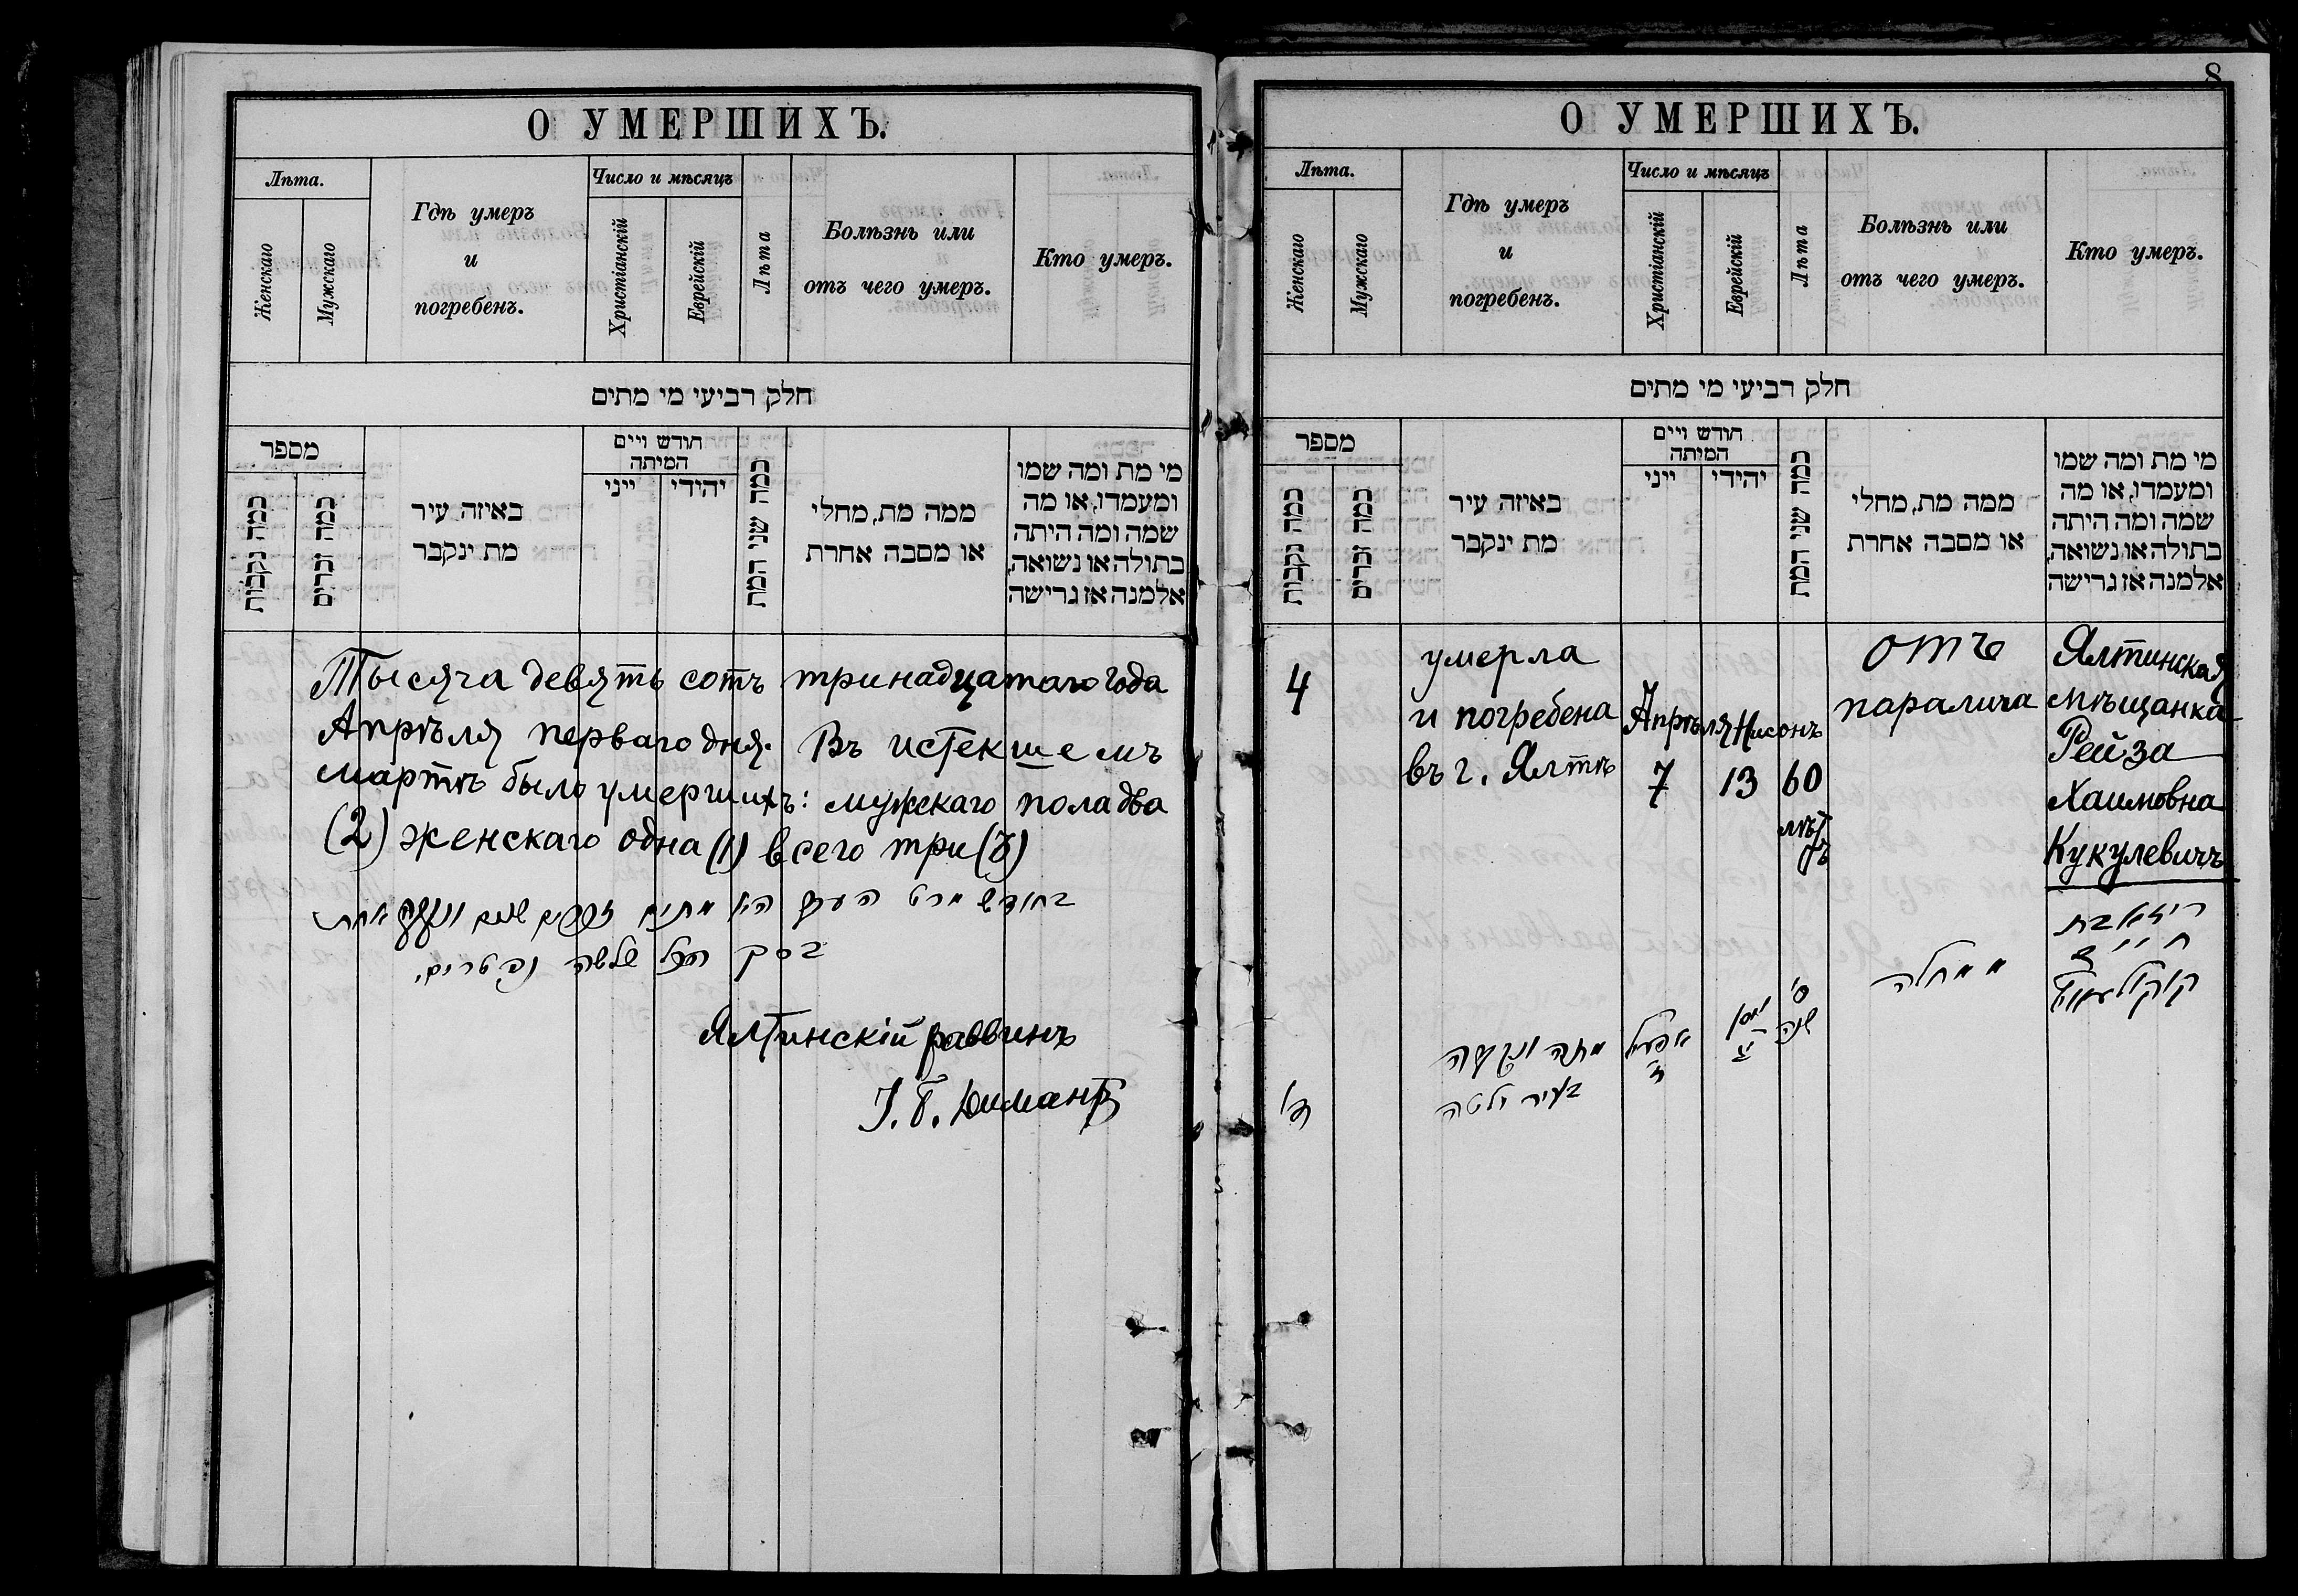 О УМЕРШИХЪ.
Лѣта.
Женскаго
Мужскаго
Гдѣ умеръ
и
погребенъ.
Число и мѣсяцъ
Христіанскій
Еврейскій
Лѣта
Болѣзнь или
отъ чего умеръ.
Кто умеръ.
חלק רביעי מי מתים
מספר
כמה נקבות
כמה זכרים
באיזה עיר
מת ינקבר
חודש ויים
המיתה
ייני
יהודי
כמה שני המת
ממה מת, מחלי
או מסבה אחרת
מי מת ומה שמו
ומעמדו, או מה
שמה ומה היתה
בתולה או נשואה,
אלמנה אז גרישה
Тысяча девять сотъ тринадцатаго года
Апрѣля перваго дня. Въ истекшемъ
мартѣ было умершихъ: мужскаго пола два
(2) женскаго одна (1) всего три (3)
בחודש מרט
הכל שלשה
Ялтинскій раввинъ
8
О УМЕРШИХЪ.
Лѣта.
Женскаго
Мужскаго
Гдѣ умеръ
и
погребенъ.
Число и мѣсяцъ
Христіанскій
Еврейскій
Лѣта
Болѣзнь или
отъ чего умеръ.
Кто умеръ.
חלק רביעי מי מתים
מספר
כמה נקבות
כמה זכרים
באיזה עיר
מת ינקבר
חודש ויים
המיתה
ייני
יהודי
כמה שני המת
ממה מת, מחלי
או מסבה אחרת
מי מת ומה שמו
ומעמדו, או מה
שמה ומה היתה
בתולה או נשואה,
אלמנה אז גרישה
4
умерла
и погребена
въ г. Ялтѣ
Апрѣля
7
Нисонъ
13
60
лѣтъ
отъ
паралича
Ялтинская
мѣщанка
Рейза
Хаимовна
Кукулевичъ
מתה ונקברה
בעיר ילטה
אפריל
ניסן
ס'
שנה
ממחלה